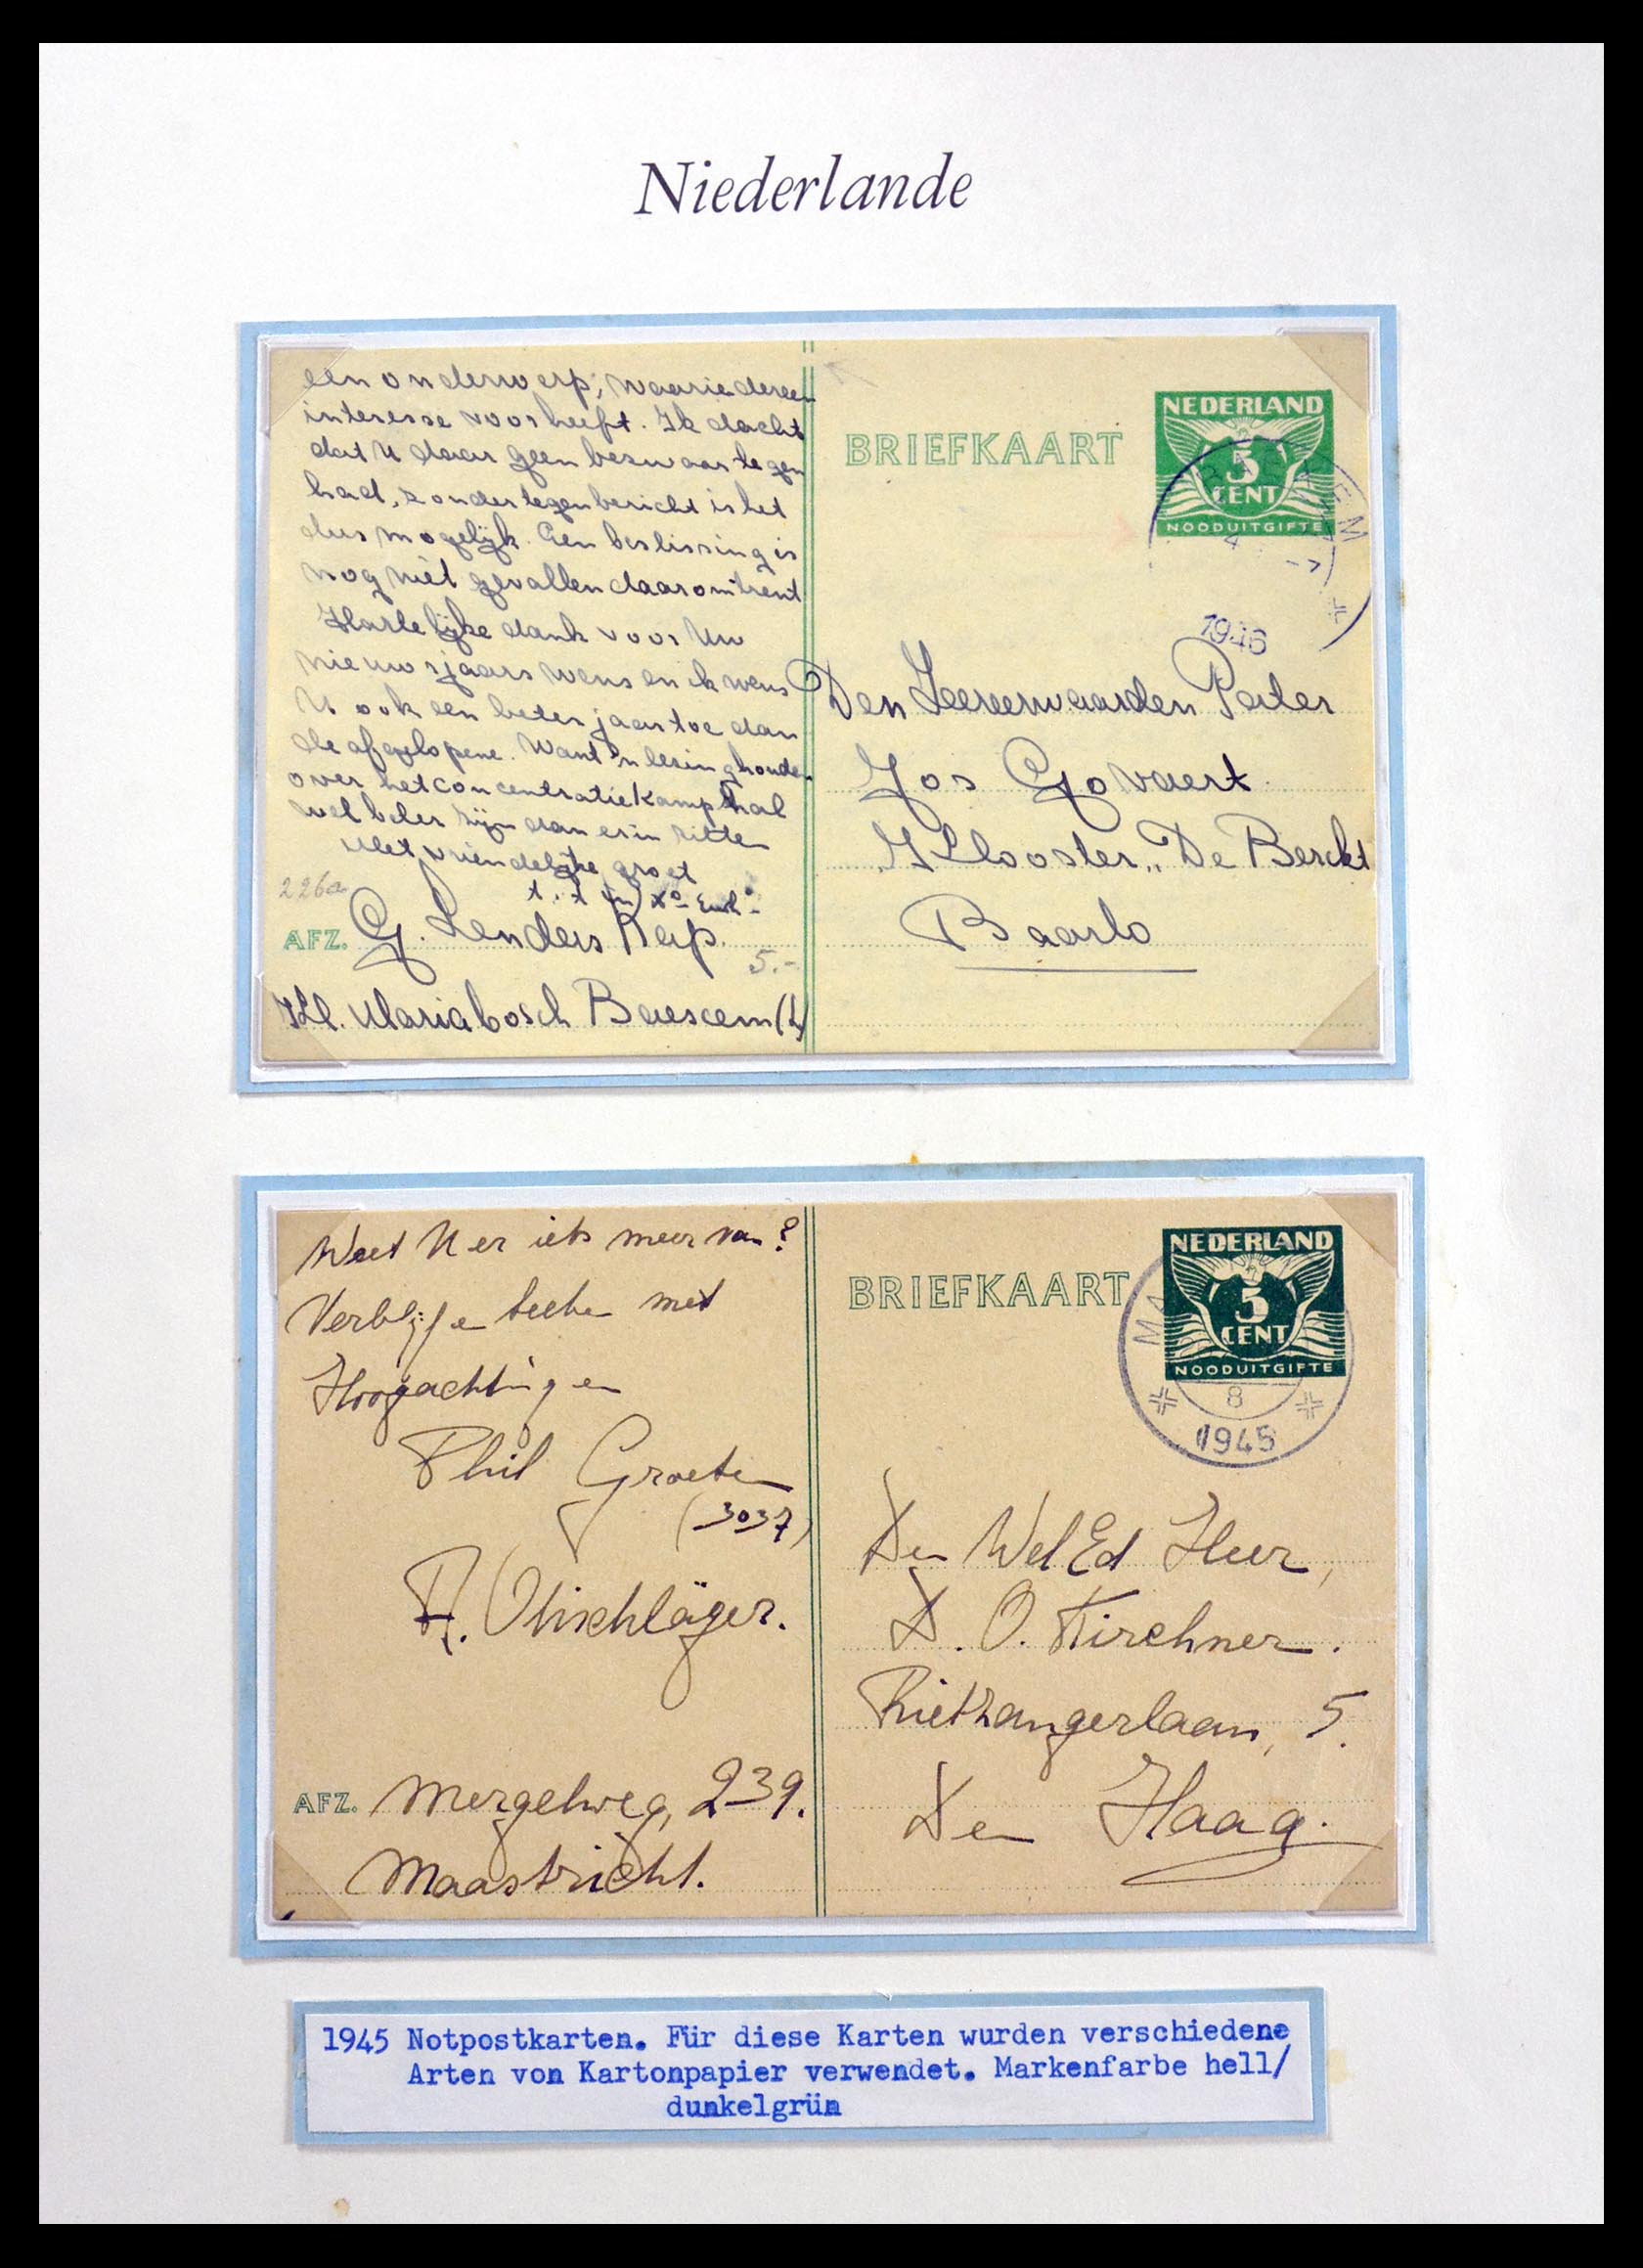 Niederlande
een onderwerp, waariedereen
interesse voor heeft. Ik dacht
dat U daar geen bezwaar tegen
had, zonder tegenbericht is het
dus mogelijk. Een beslissing is
nog niet gevallen daaromtrent.
Hartelijke dank voor Uw
nieuwsjaars wens en ik wens
U ook een beter jaar toe dan
de afgelopene. Want 'n lezing houden
over het concentratiekamp zal
wel beter zijn dan er in zitten
Met vriendelijke groet
t.t. in Xo
226a
AFZ. G. Lenders Kap.
5.-
Kl. Mariabosch Baexem (L)
BRIEFKAART
NEDERLAND
5
CENT
NOODUITGIFTE
1946
Den Zeereerwaarden Pater
Jos Govaert
Klooster „De Berckt
Baarlo
Weet U er iets meer van?
Verblijve teeken met
Hoogachting en
Phil Groeten
(3037)
AFZ. Mergelweg, 239.
Maastricht.
BRIEFKAART
NEDERLAND
5
CENT
NOODUITGIFTE
8
1945
Den WelEd Heer,
D. O. Kirchner.
Rietzangerlaan, 5.
Den Haag.
1945 Notpostkarten. Für diese Karten wurden verschiedene
Arten von Kartonpapier verwendet. Markenfarbe hell/
dunkelgrün